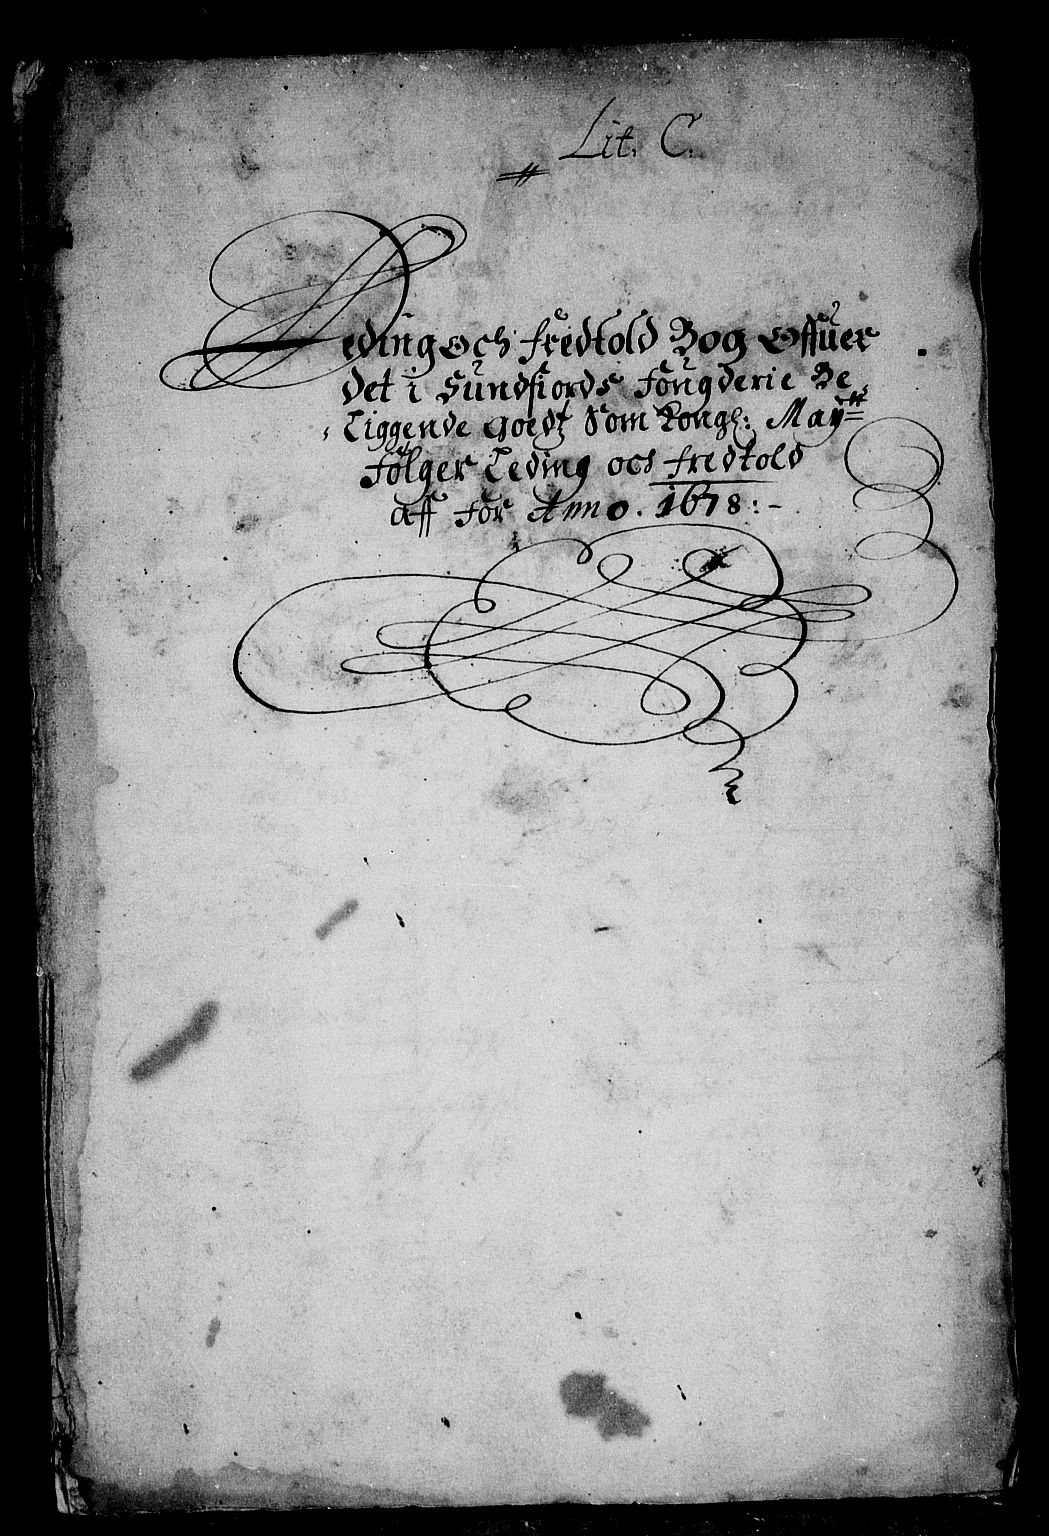 Lit. C.
Leding och fredtold Bog Offuer
det i Sundfiords fougderie Be,
, liggende Goedtz Som Kongl: Maytt
følger Leding och fredtold
aff for Anno. 1678:-